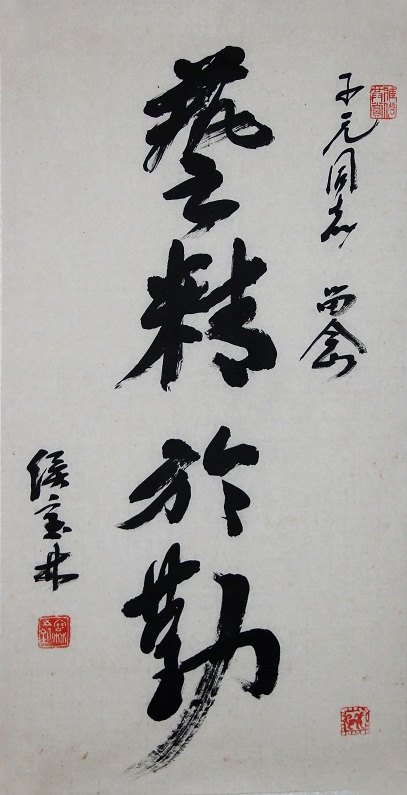 子元同志 留念
藝精於勤
侯宝林